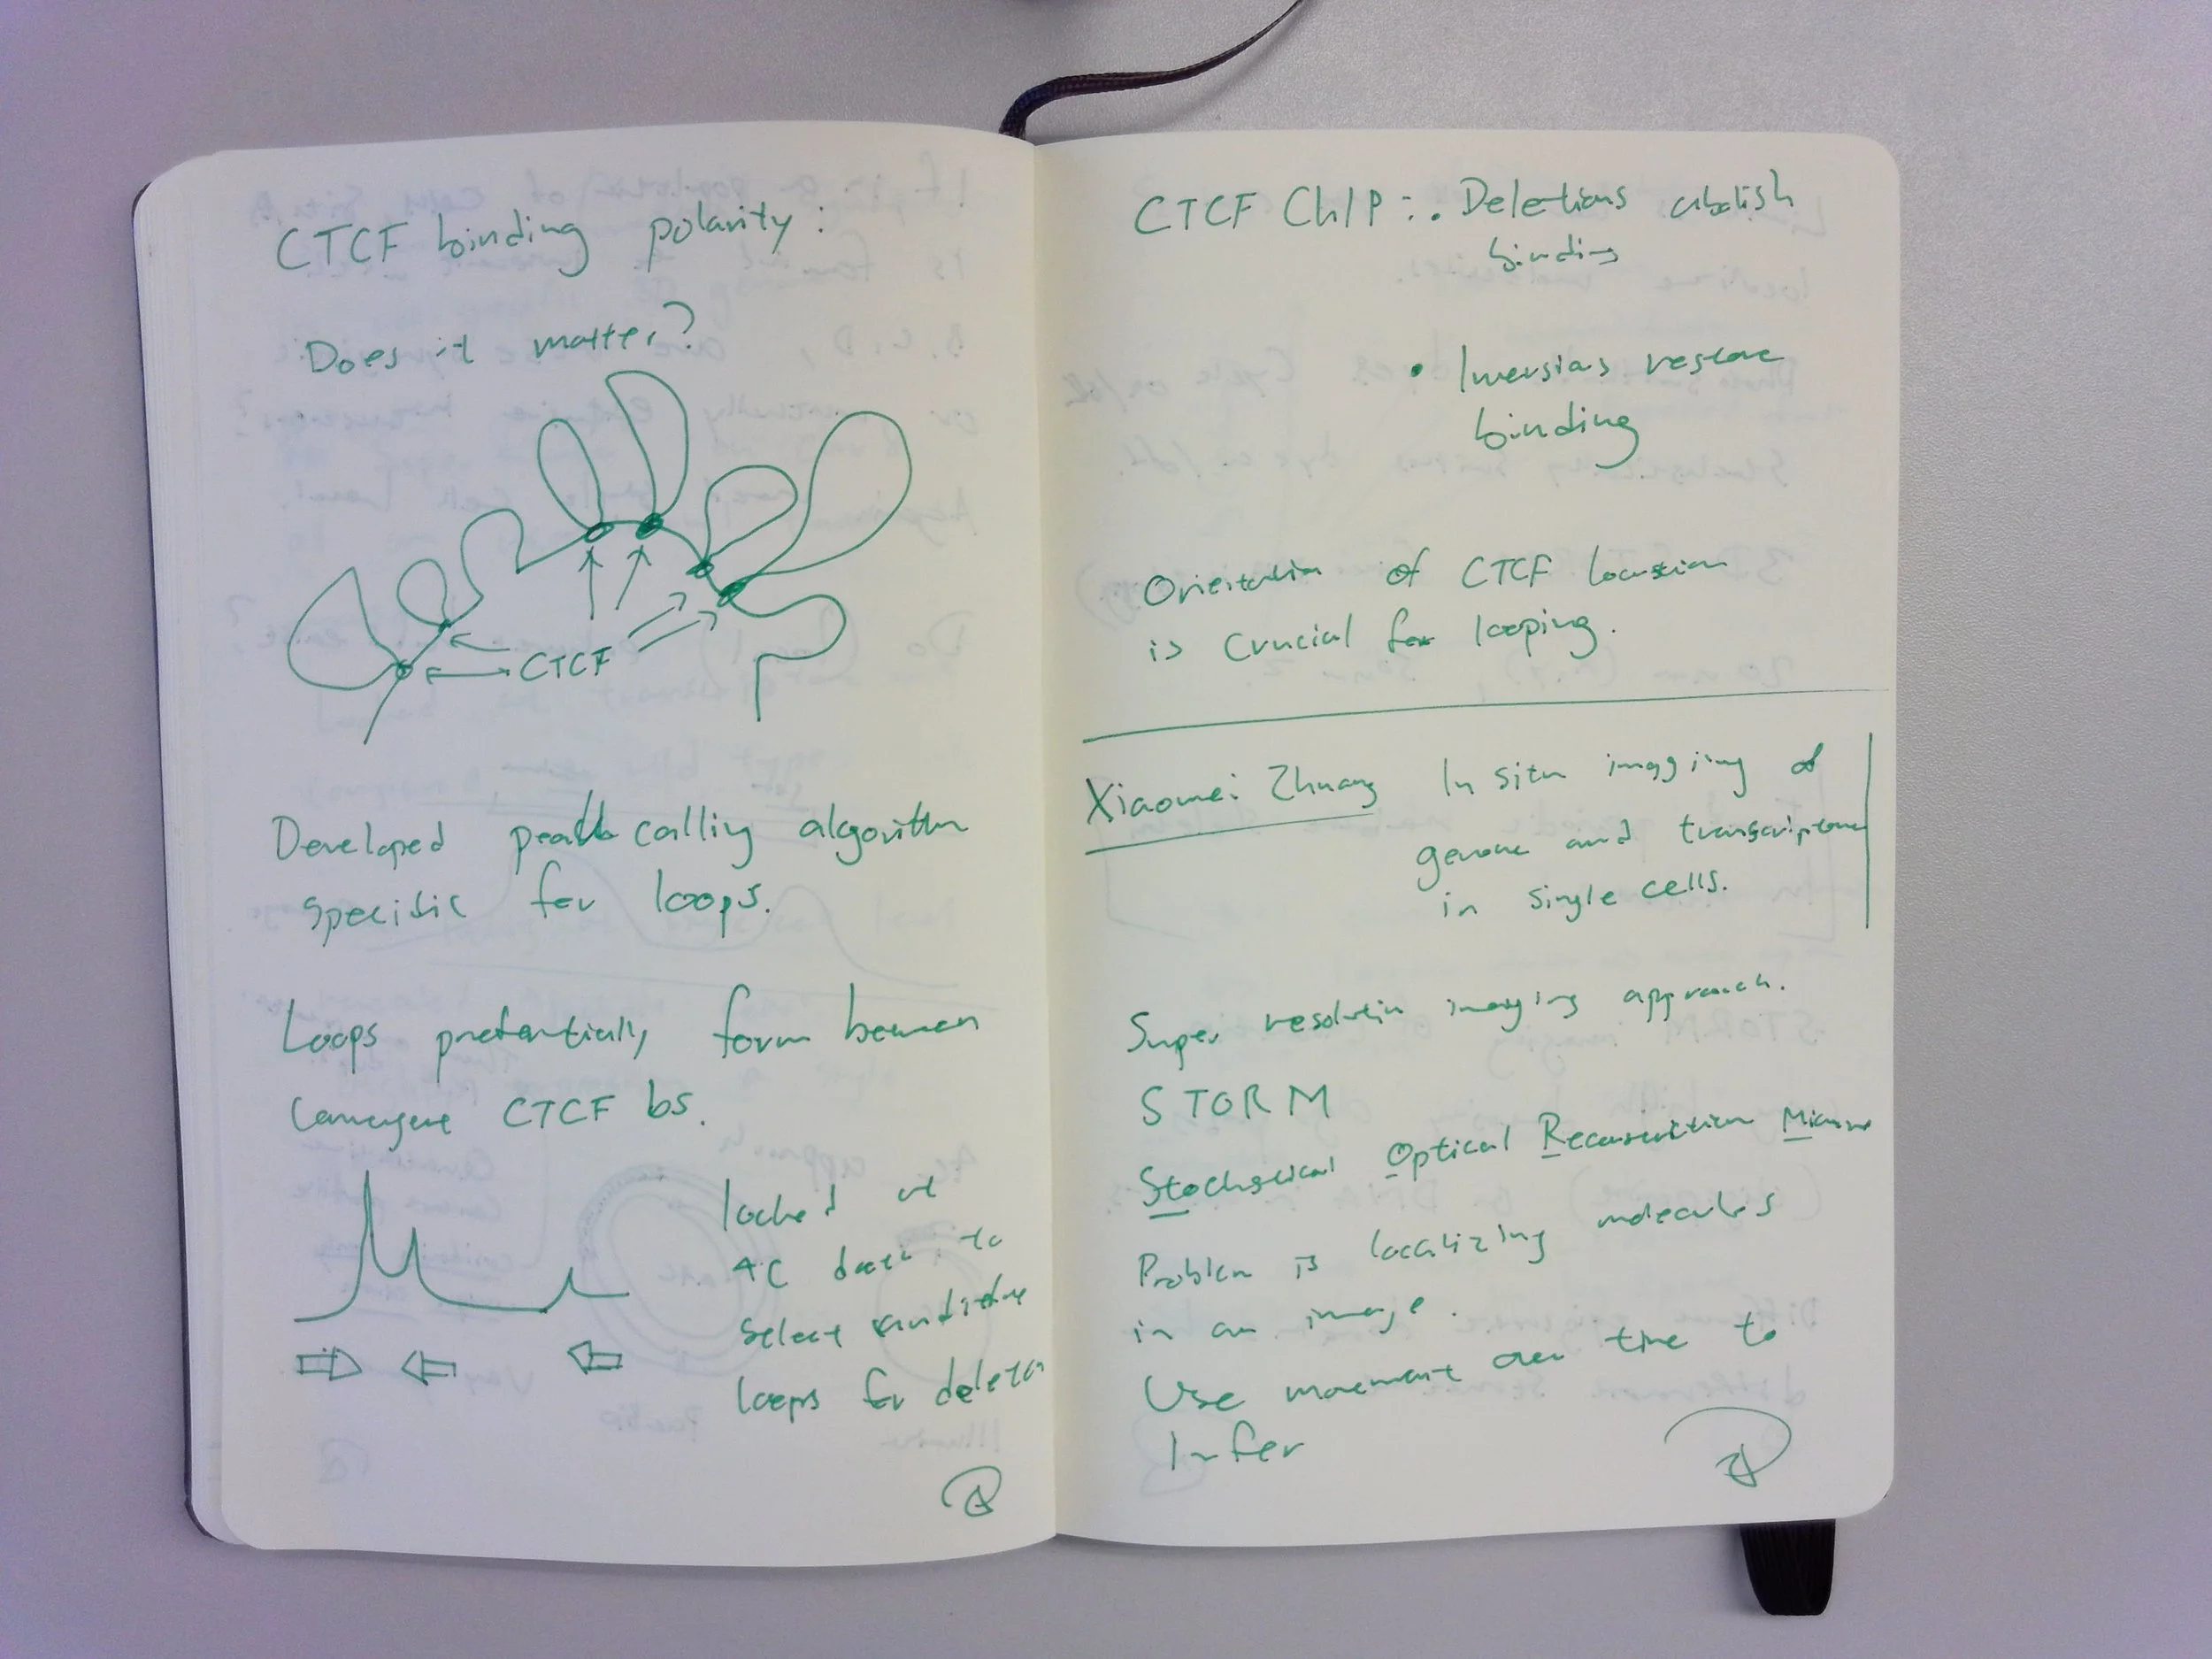 CTCF binding polarity:
Does it matter?
CTCF
Developed peak calling algorithm
specific for loops.
Loops form between
CTCF bs.
looked at
4C data to
select candidate
loops for deletion
CTCF ChIP: • Deletions abolish
binding
• Inversions restore
binding
Orientation of CTCF
is crucial for looping.
Xiaowei Zhuang In situ imaging of
genome and transcriptome
in single cells.
Super resolution imaging approach.
STORM
Optical Reconstruction
Problem is localizing molecules
in an image.
Use movement over time to
Infer